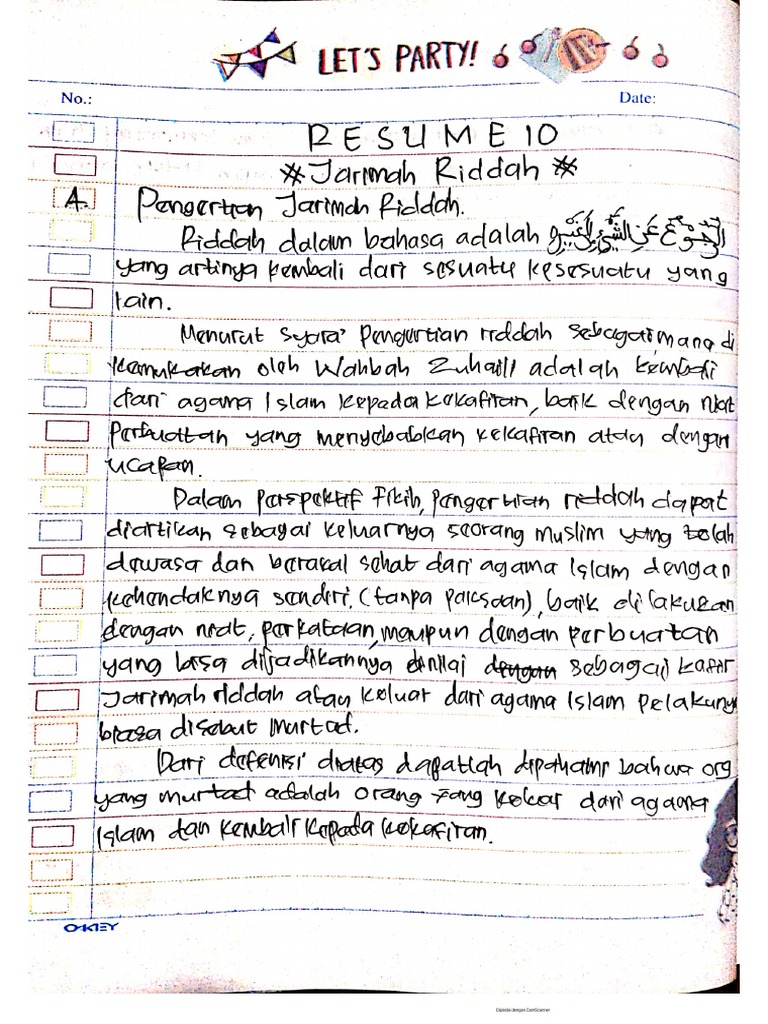 LET'S PARTY!
No.:
Date:
RESUME 10
* Jarimah Riddah *
A. Pengertian Jarimah Riddah.
Riddah dalam bahasa adalah الرجوع عن الشيء إلى غيره
yang artinya kembali dari sesuatu kesesuatu yang
lain.
Menurut syara' pengertian riddah sebagaimana di
kemukakan oleh Wahbah Zuhaili adalah kembali
dari agama Islam kepada kekafiran, baik dengan niat
Perbuattan yang menyebabkan kekafiran atau dengan
ucapan.
Dalam perspektif Fikih, pengertian riddah dapat
diartikan sebagai keluarnya seorang muslim yang telah
dewasa dan berakal sehat dari agama Islam dengan
kehendaknya sendiri. (tanpa paksaan), baik dilakukan
dengan niat, perkataan, maupun dengan perbuatan
yang bisa dijadikannya dinilai dengan sebagai kafir
Jarimah riddah atau keluar dari agama Islam pelakuny
biasa disebut Murtad.
Dari defenisi diatas dapatlah dipahami bahwa org
yang murtad adalah orang yang keluar dari agama
Islam dan kembali kepada kekafiran.
OAKLEY
Dipindai dengan CamScanner